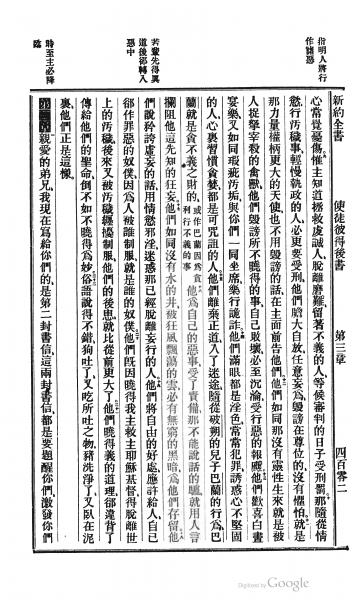 新約全書 使徒彼得後書 第三章 四百零二
指明人將行
作諸惡
心常覺憂傷惟主知道拯救虔誠人脫離磨難留著不義的人等候審判的日子受刑罰那隨從情
慾行汚穢事輕慢執政的人必更要受刑他們膽大自放任意妄為毀謗在尊位的沒有懼怕就是
那力量權柄更大的天使也不用毀謗的話在主面前告他們他們如同那沒有靈性生來就是被
人捉拏宰殺的禽獸他們毀謗所不曉得的事自己敗壞以至沉淪受行惡的報應他們歡喜白晝
宴樂又如同瑕疵汚垢與你們一同坐席樂行詭詐他們滿眼都是淫色常常犯罪誘惑心不堅固
的人心裏習慣貪婪都是可咒詛的人他們離棄正道入了迷途隨從彼朔的兒子巴蘭的行為巴
蘭就是貪不義之財的或作巴蘭因為貪利行不義的事他為自己的惡事受了責備那不能說話的驢就用人言
攔阻他這先知的狂妄他們如同沒有水的井被狂風飄蕩的雲必有無窮的黑暗為他們存留他
若輩先得異
道後卻轉入
惡中
們說矜誇虛妄的話用情慾邪淫迷惑那已經脫離妄行的人他們將自由的好處應許給人自己
卻作罪惡的奴僕因為人被誰制服就是誰的奴僕他們既因曉得我主救主耶穌基督得脫離世
上的汚穢後來又被汚穢纏擾制服他們的後患就比從前更大了他們曉得義的道理卻違背了
傳給他們的聖命倒不如不曉得為妙俗語說得不錯狗吐了又吃所吐之物豬洗淨了又臥在泥
裏他們正是這樣
時至主必降
臨
第三章親愛的弟兄我現在寫給你們的是第二封書信這兩封書信都是要題醒你們激發你們
Digitized by Google